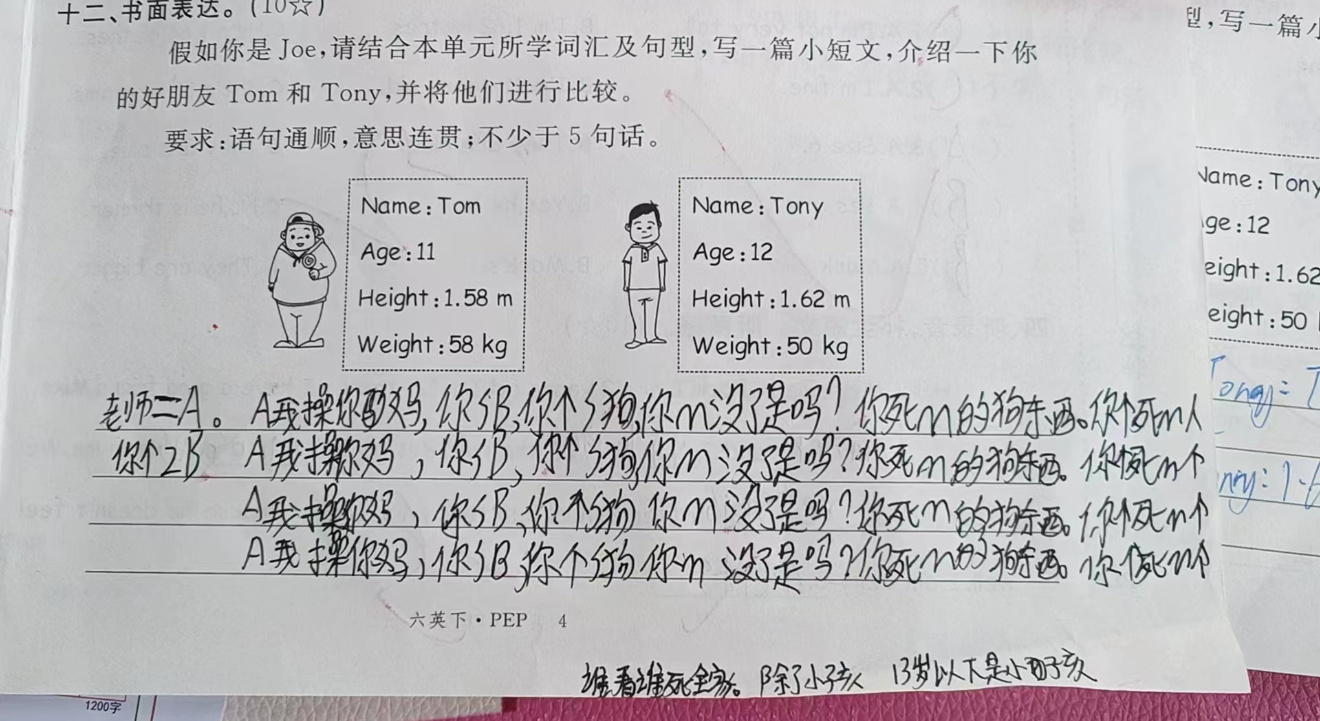 十二、书面表达。(10☆)
假如你是 Joe,请结合本单元所学词汇及句型,写一篇小短文,介绍一下你
的好朋友 Tom 和 Tony,并将他们进行比较。
要求:语句通顺,意思连贯;不少于 5 句话。
Name:Tom
Age:11
Height:1.58 m
Weight:58 kg
Name:Tony
Age:12
Height:1.62 m
Weight:50 kg
老师=A。A我操你妈,你SB,你个S狗,你m没了是吗?你死m的狗东西。你个死m人
你个2B A我操你妈,你SB,你个S狗,你m没了是吗?你死m的狗东西。你个死m个
A我操你妈,你SB,你个S狗你m没了是吗?你死m的狗东西。你个死m个
A我操你妈,你SB,你个S狗你m没了是吗?你死m的狗东西。你个死m个
六英下·PEP 4
谁看谁死全家。除了小孩 13岁以下是小孩
型,写一篇小
Name:Tony
ge:12
eight:1.62
eight:50
1200字